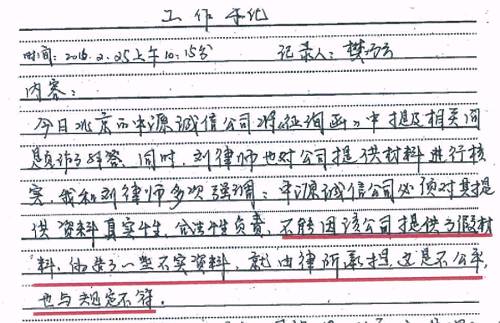 工作笔记
时间：2016.2.25上午10:15分 记录人：樊
内容：
今日北京市中源诚信公司将《征询函》中提及相关问
题作了解答，同时，刘律师也对公司提供材料进行核
实，我和刘律师多次强调：中源诚信公司必须对其提
供资料真实性、合法性负责，不能因该公司提供了假材
料，伪装了一些不实资料，就由律所承担，这是不公平，
也与规定不符。